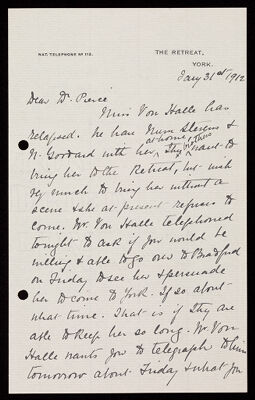 NAT. TELEPHONE Nº 112.
THE RETREAT,
YORK.
Jany 31st 1912
Dear Dr Pierce
Miss Von Halle has
relapsed. We have Nurse Stevens &
N. Goddard with her at home, & they want to
bring her to the Retreat, but wish
vy much to bring her without a
scene & she at present refuses to
come. Mr Von Halle telephoned
tonight to ask if you would be
willing & able to go over to Bradford
on Friday to see her & persuade
her to come to York. If so about
what time. That is if they are
able to keep her so long. Mr Von
Halle wants you to telegraph to him
tomorrow about Friday & what you